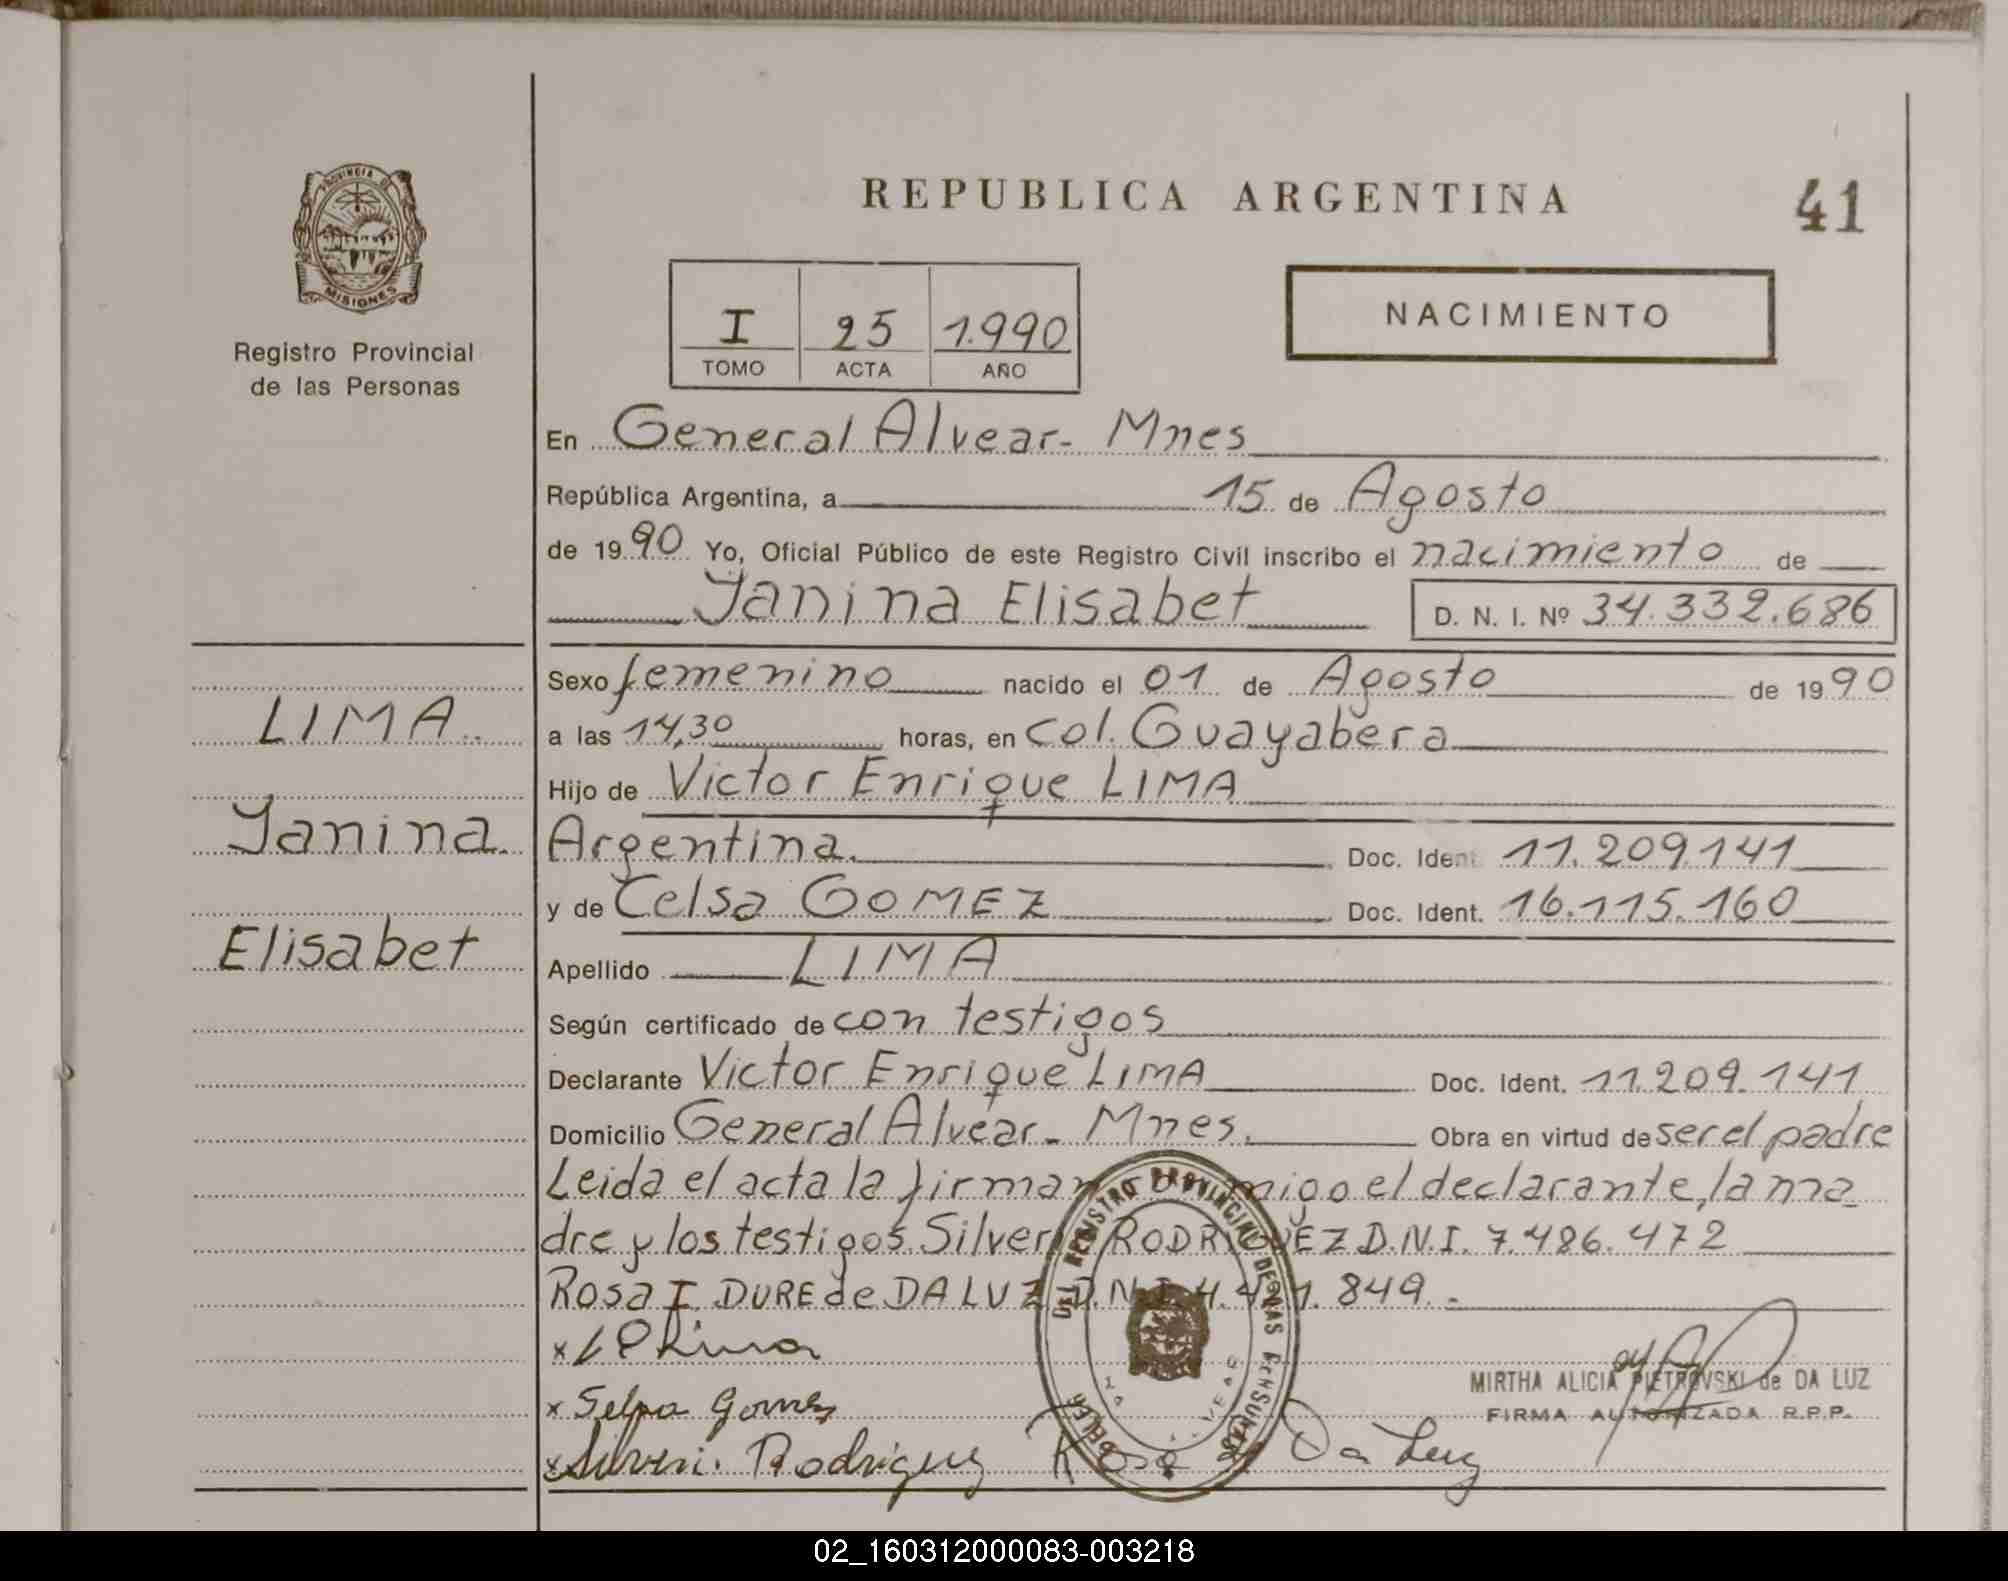 PROVINCIA DE
MISIONES
Registro Provincial
de las Personas
LIMA
Yanina
Elisabet
REPUBLICA ARGENTINA
41
I 25 1.990
TOMO ACTA AÑO
NACIMIENTO
En General Alvear - Mnes
República Argentina, a 15 de Agosto
de 1990 Yo, Oficial Público de este Registro Civil inscribo el nacimiento de
Yanina Elisabet D. N. I. Nº 34.332.686
Sexo femenino nacido el 01 de Agosto de 1990
a las 14,30 horas, en Col. Guayabera
Hijo de Victor Enrique LIMA
Argentina. Doc. Ident. 11.209.141
y de Celsa GOMEZ Doc. Ident. 16.115.160
Apellido LIMA
Según certificado de con testigos
Declarante Victor Enrique LIMA Doc. Ident. 11.209.141
Domicilio General Alvear - Mnes. Obra en virtud de ser el padre
Leida el acta la firman conmigo el declarante, la ma
dre y los testigos Silveri RODRIGUEZ D.N.I. 7.486.472
Rosa I. DURE de DA LUZ D.N.I. 4. 849.-
DEL REGISTRO PROVINCIAL DE LAS PERSONAS
x Lima
MIRTHA ALICIA PIETROVSKI de DA LUZ
x Selsa Gomez
FIRMA AUTORIZADA R.P.P.
x Silveri. Rodriguez Rosa Da Luz
02_160312000083-003218